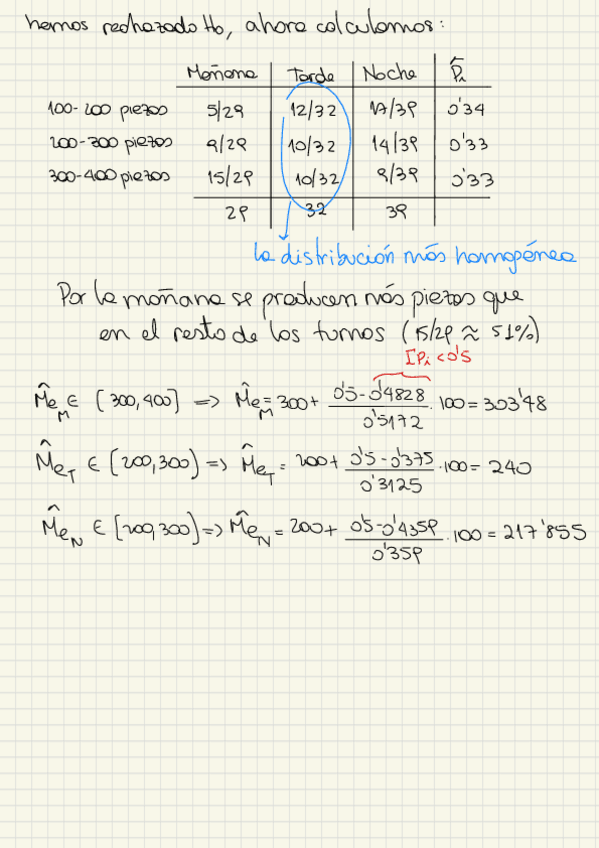 hemos rechazado Ho, ahora calculamos:
Mañana Tarde Noche P̂i
100-200 piezas 5/29 12/32 17/39 0'34
200-300 piezas 9/29 10/32 14/39 0'33
300-400 piezas 15/29 10/32 8/39 0'33
29 32 39
la distribución más homogénea
Por la mañana se producen más piezas que
en el resto de los turnos (15/29 ≈ 51%)
Σpi < 0'5
M̂e_M ∈ [300,400] => M̂e_M = 300 + (0'5-0'4828)/0'5172 · 100 = 303'48
M̂e_T ∈ [200,300) => M̂e_T = 200 + (0'5-0'375)/0'3125 · 100 = 240
M̂e_N ∈ [200,300) => M̂e_N = 200 + (0'5-0'4359)/0'359 · 100 = 217'855